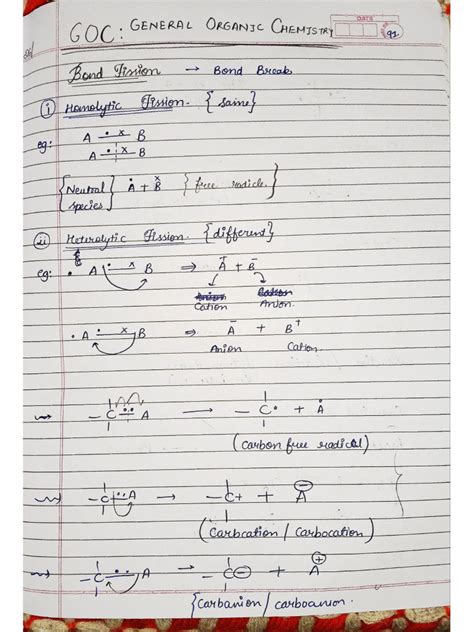 GOC: GENERAL ORGANIC CHEMISTRY
DATE
91
Bond Fission → Bond Break
(i) Homolytic Fission. {Same}
eg: A • x B
A • x B
{Neutral species} Ȧ + B { free radicle. }
(ii) Heterolytic Fission. {different}
eg: • A • x B ⇒ A + B
Anion Cation
Cation Anion.
• A • x B ⇒ A⁻ + B⁺
Anion Cation.
– C : A → – C• + Ȧ
(Carbon free radical)
– C : A → – C+ + A⊖
(Carbcation / Carbocation)
– C • • A → – C⊖ + A⊕
{Carbanion / carboanion.